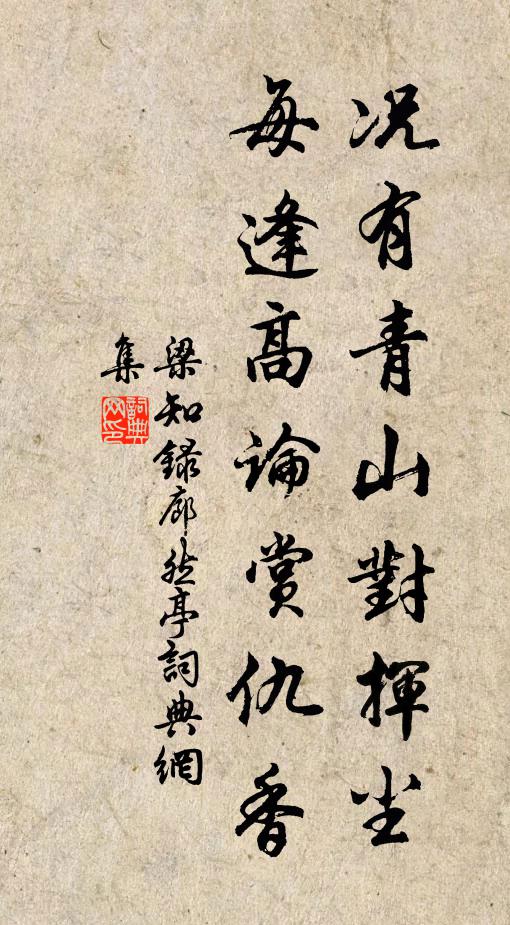 况有青山對揮尘
每逢高論賞仇香
梁知録廊然亭詞典網
集
詞典網印